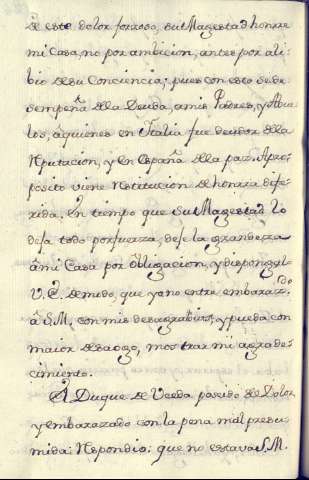 de este dolor forzoso, su Magestad honrre
mi Casa, no por ambicion, antes por ali-
bio de su Conciencia; pues con esto se de-
sempeña de la Deuda, a mis Padres, y Abue-
los, àquienes en Italia fue deudor de la
Reputacion, y en España de la paz. Apro-
posito viene restitucion de honrra dife-
rida, en tiempo que su Magestad lo
deja todo por fuerza, deje la grandeza
à mi Casa por obligacion, y disponga
V.E. de modo, que yo no entre embaraz.do
à S.M. con mis desagrabios, y pueda con
maior desaogo, mostrar mi agrade-
cimiento.
El Duque de Uceda poseido del Dolor
y embarazado con la pena mal presu-
mida: Respondio: que no estava S.M.